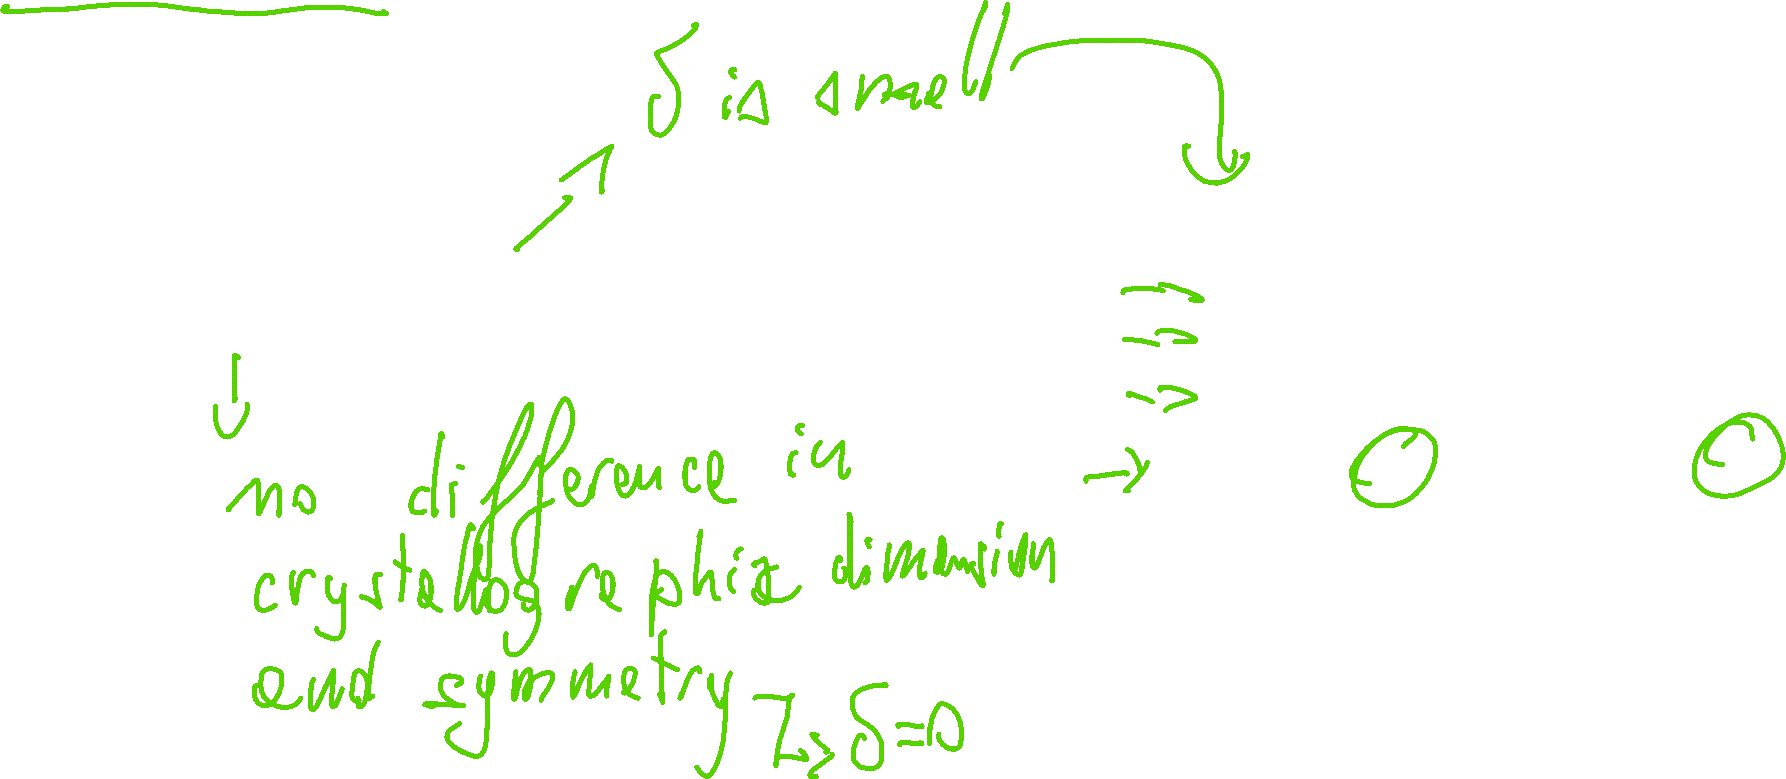 δ is small
no difference in
crystallographic dimension
and symmetry
δ=0